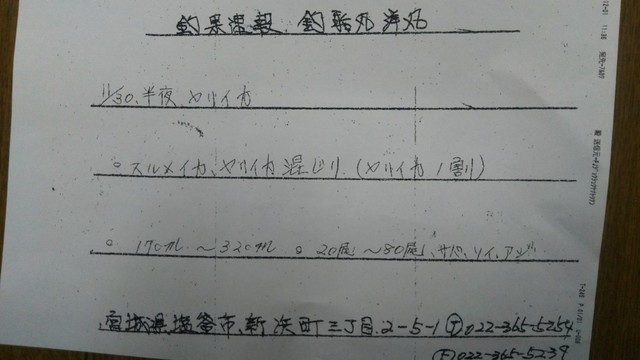 釣果速報、釣船丸洋丸
11/30、半夜、ヤリイカ
○ スルメイカ、ヤリイカ混じり (ヤリイカ1割)
○ 170m ～320m ○ 20尾 ～80尾、サバ、ソイ、アジ
宮城県塩釜市、新浜町三丁目、2-5-1 Ⓣ022-365-5254
Ⓕ022-365-5239